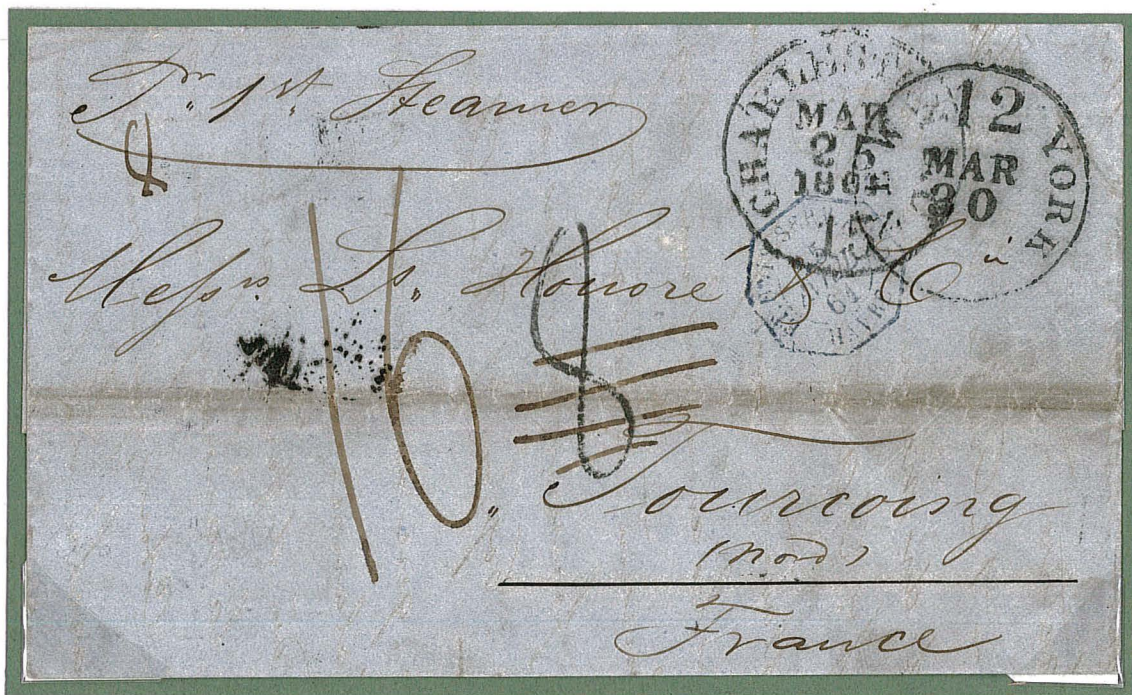 Pr. 1st Steamer
CHARLESTON
MAR
25
1861
15
NEW YORK
12
MAR
30
Messrs Ls. Honoré & Cie
61
HAVRE
8
16
Tourcoing
(Nord)
France